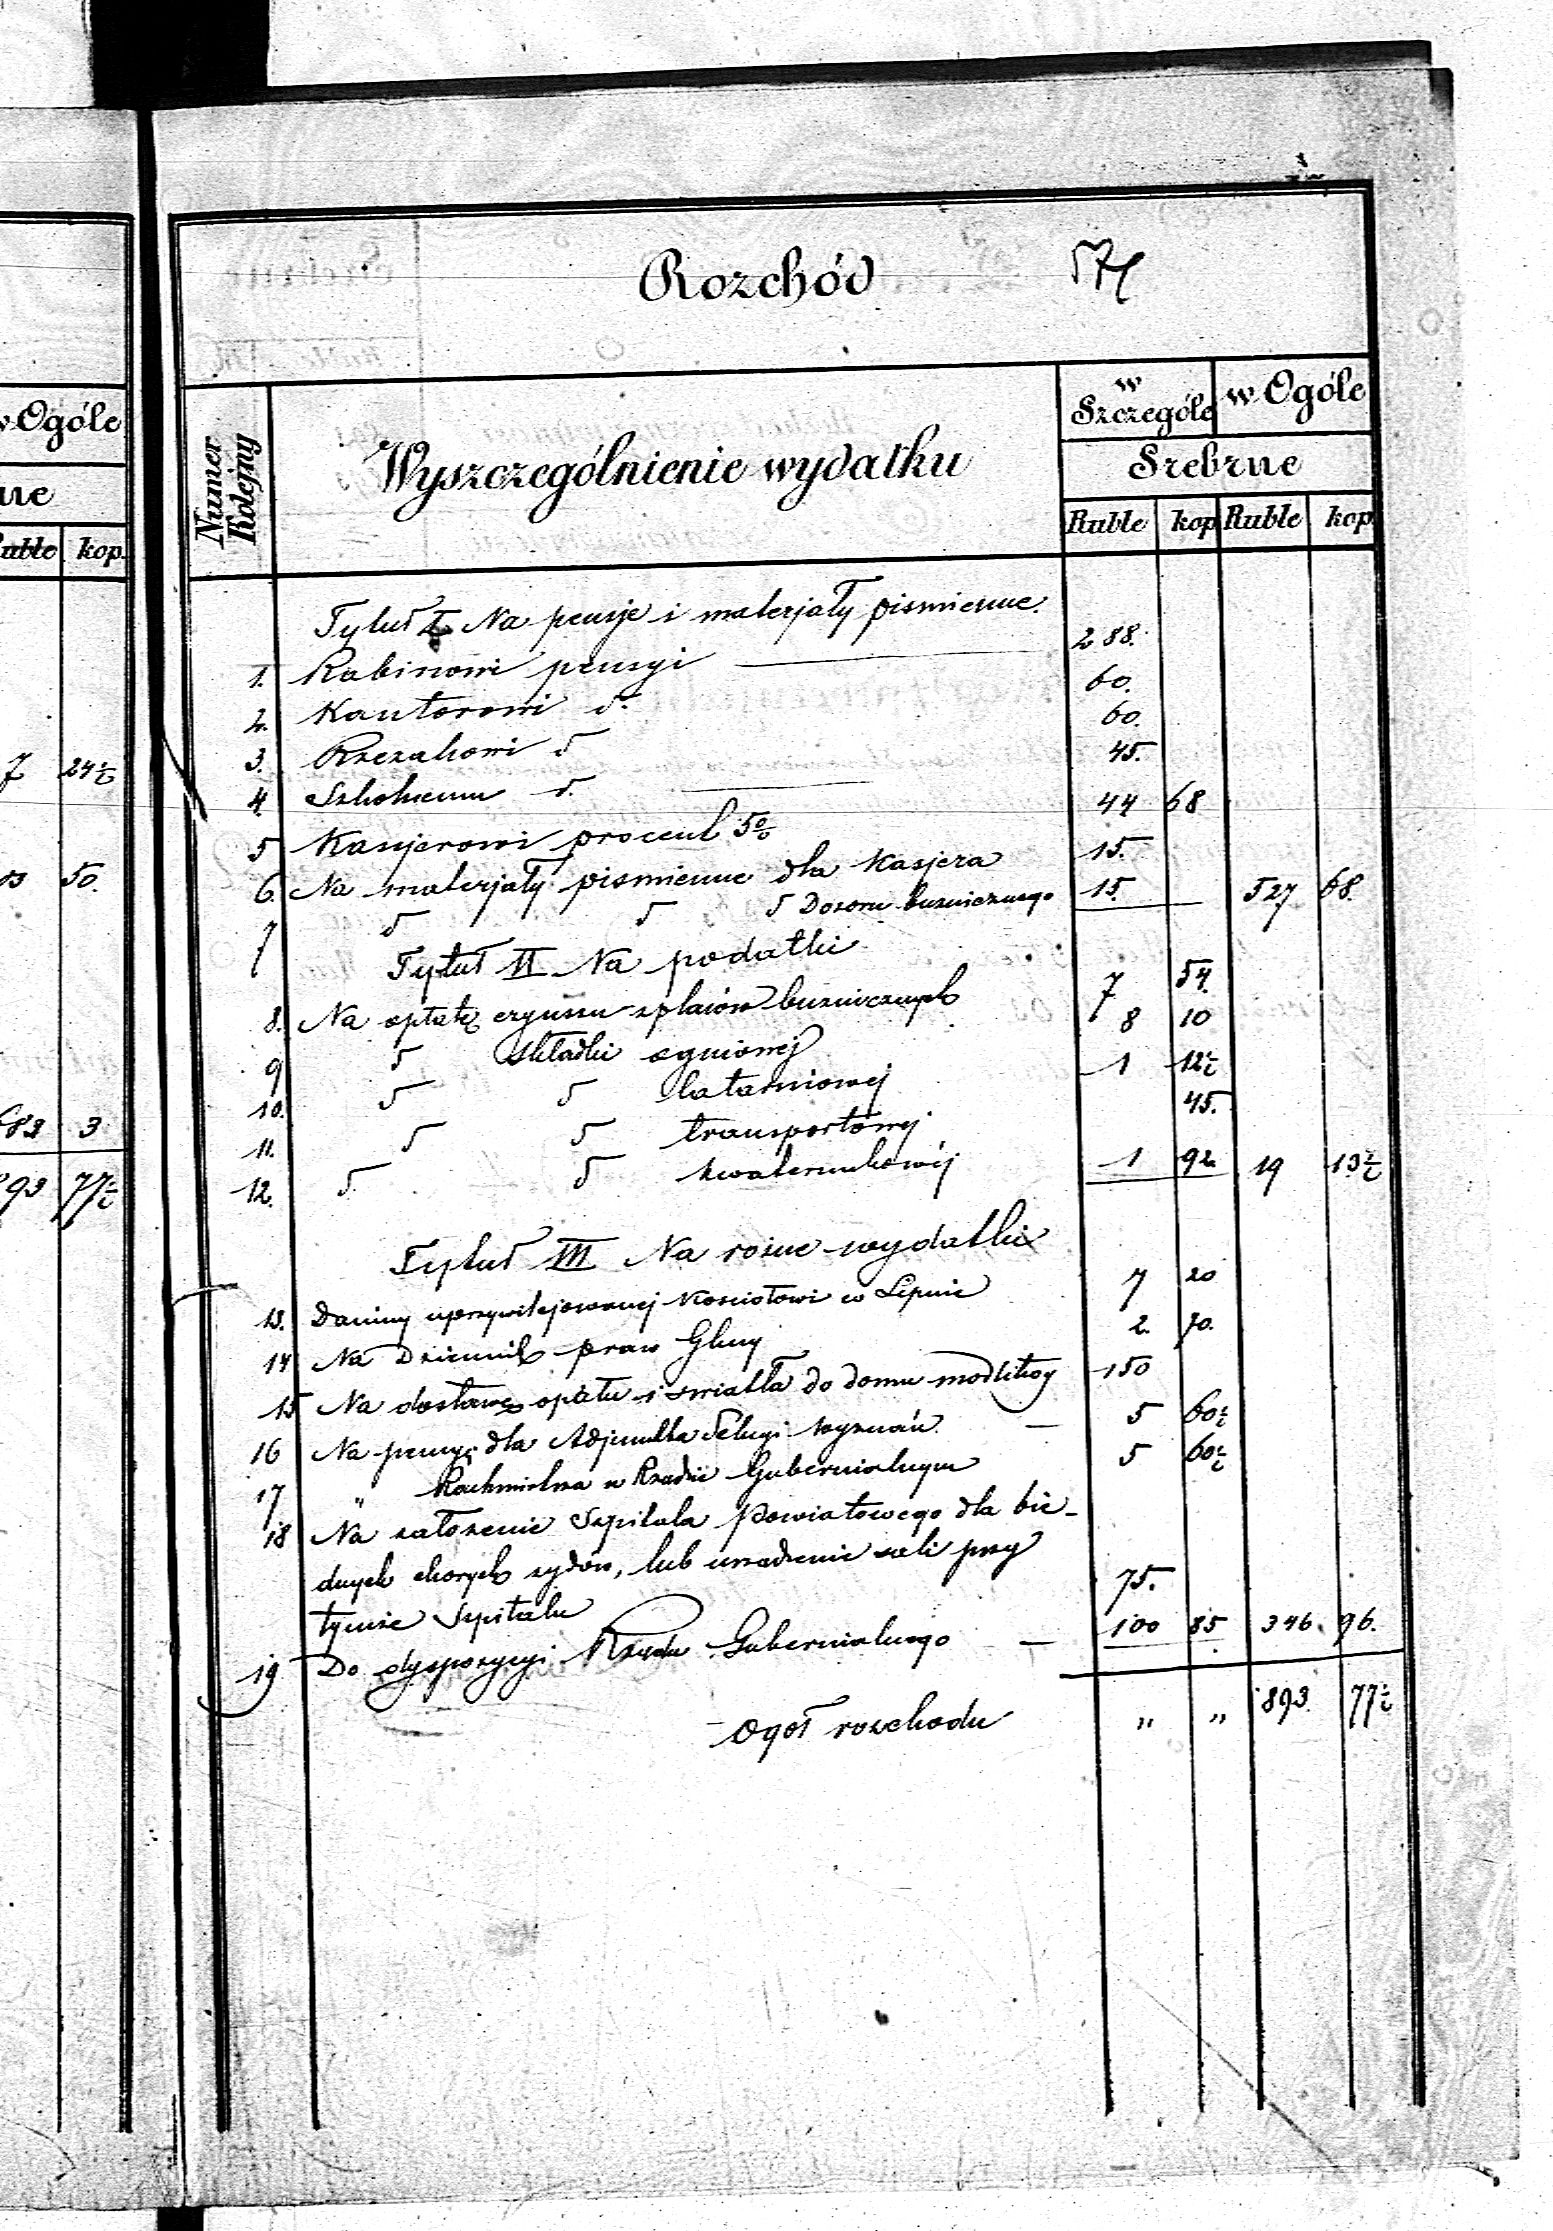 Rozchód 571
Numer Kolejny
Wyszczególnienie wydatku
w Szczególe
w Ogóle
Srebrne
Ruble kop Ruble kop
Tytuł I Na pensje i materjały piśmienne.
1. Rabinowi pensyi 288.
2. Kantorowi d° 60.
3. Rzezakowi d 60.
4. Szkolnemu d. 45.
5 Kasjerowi procent 5% 44 68
6. Na materjały piśmienne dla Kasjera 15.
7 d d d Dozoru bużnicznego 15. 527 68.
Tytuł II Na podatki
8. Na opłatę czynszu z placów bużnicznych 7 54.
9 d składki ogniowej 8 10
10. d d latarniowej 1 12½
11. d d transportowej 45.
12. d. d kwaterunkowéj 1 92 19 13½
Tytuł III Na rożne wydatki
13. Daniny uprzywilejowanej Kosciołowi w Lipnie 7 20
14 Na Dziennik praw Gbny 2. 70.
15 Na dostawę opału i swiatła do domu modlitwy 150
16 Na pensyę dla Adjunkta Sekcyi Wyznań 5 60½
17 " Rachmistrza w Rządzie Gubernialnym 5 60½
18 Na założenie Szpitala Powiatowego dla bie-
dnych chorych żydów, lub urządzenie sali przy
tymże Szpitalu 75.
19 Do dyspozycyi Rządu Gubernialnego 100 85 346. 96.
Ogoł rozchodu " " 893. 77½
w Ogóle
Ruble kop.
7 24½
50.
683 3
893 77½